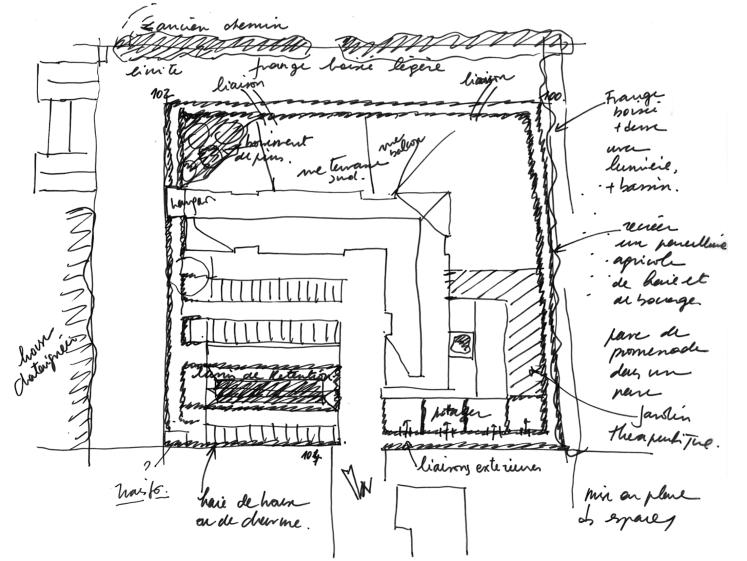 l'ancien chemin
limite
frange boisée légère
liaison
liaison
102
100.
boisement
de pins.
vue terrasse
sud.
vue
balcon
hangar
Frange
boisée
+ dense
avec
lumière,
+ bassin.
recréer
un parcellaire
agricole
de haie et
de bocages
parc de
promenade
dans un
parc
jardin
thérapeutique.
houx
chataigniers
bassin de rétention
potager
104
liaisons extérieures
haie de houx
ou de charme.
mise en place
des espaces